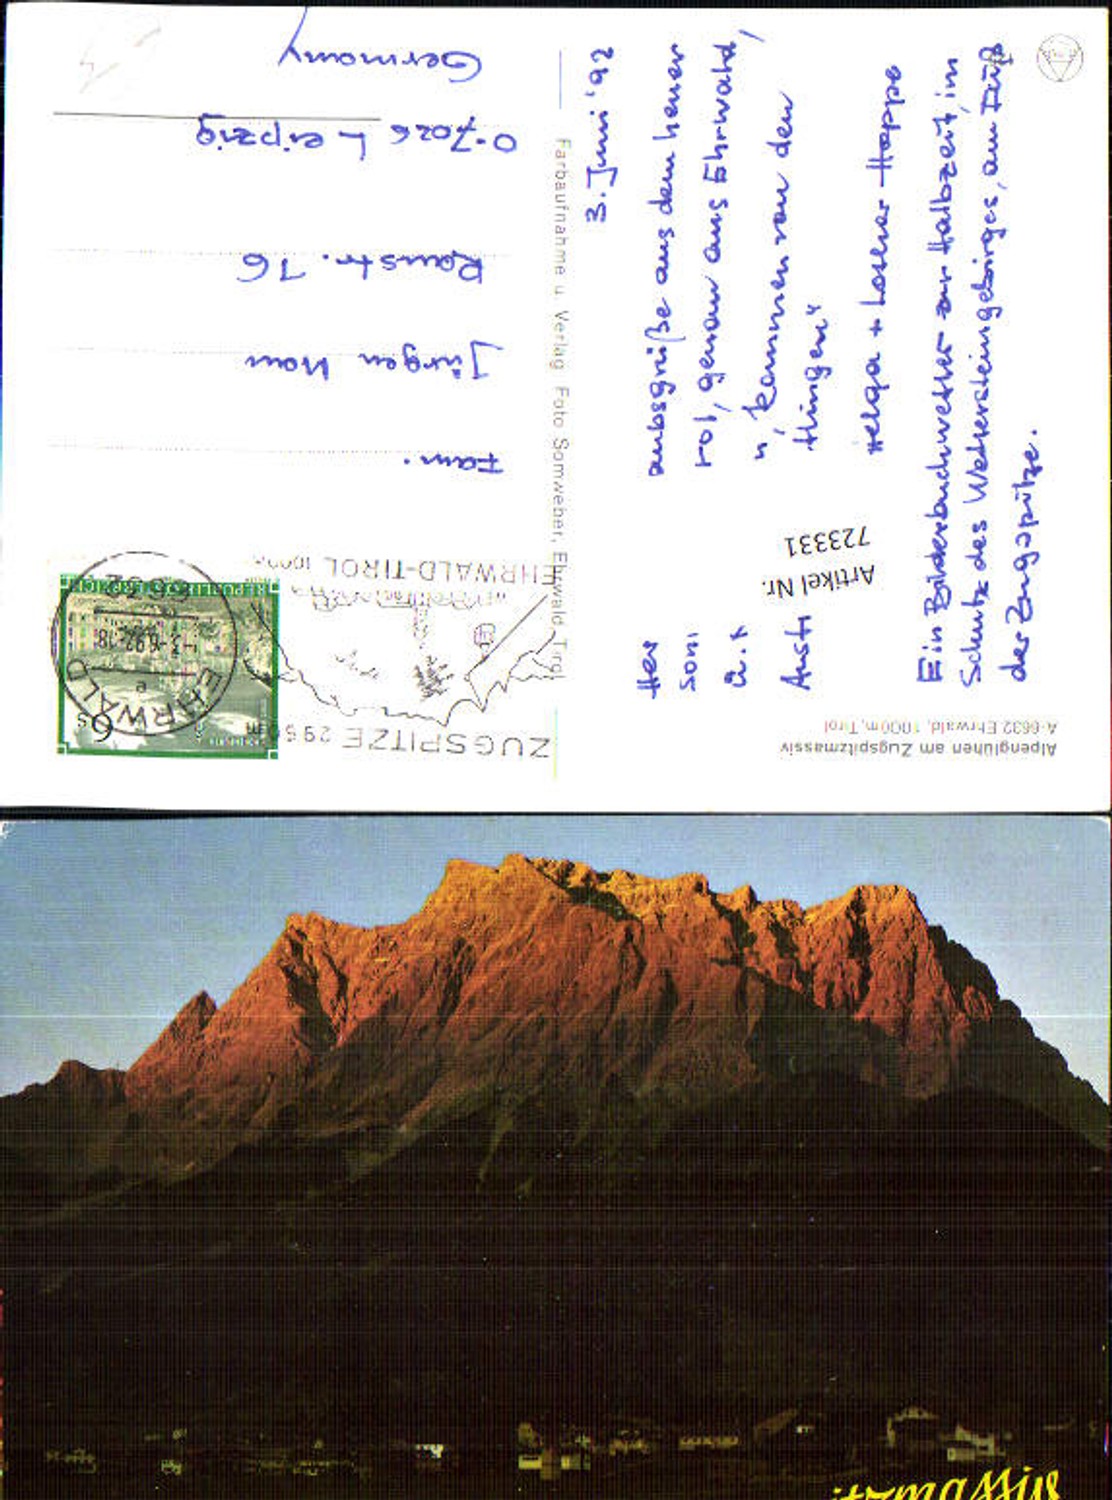 Alpenglühen am Zugspitzmassiv
A-6632 Ehrwald, 1000m, Tirol
Farbaufnahme u. Verlag Foto Somweber, Ehrwald, Tirol
ZUGSPITZE 2950 m
EHRWALD-TIROL 1000m
EHRWALD
-3.-6.92-18
e
6632
REPUBLIK ÖSTERREICH
6 S
3. Juni '92
Her aubsgrüße aus dem
son rol, genau aus Ehrwald,
u. kommen von den
Aust
Helga + Hoppe
Ein Bilderbuchwetter zur Halbzeit, im
Schutz des Wettersteingebirges, am Fuß
der Zugspitze.
Artikel Nr.
723331
Fam.
Jürgen
16
O-7026 Leipzig
Germany
itzmassiv